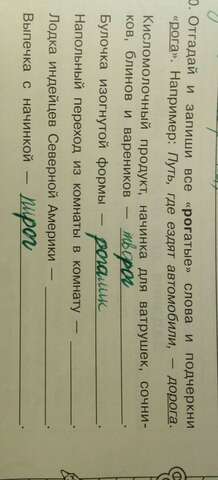 0. Отгадай и запиши все «рогатые» слова и подчеркни
«рога». Например: Путь, где ездят автомобили, — дорога.
Кисломолочный продукт, начинка для ватрушек, сочни-
ков, блинов и вареников — творог.
Булочка изогнутой формы — рогалик.
Напольный переход из комнаты в комнату — .
Лодка индейцев Северной Америки — .
Выпечка с начинкой — пирог.